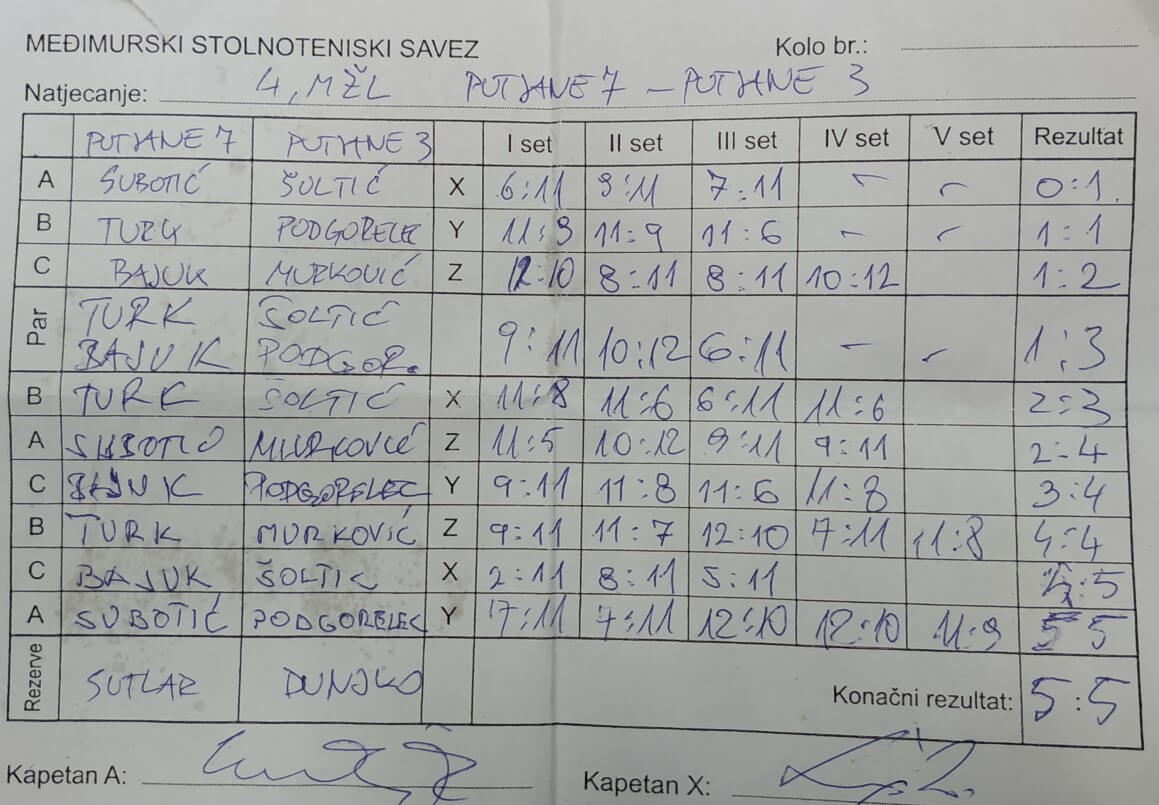 MEĐIMURSKI STOLNOTENISKI SAVEZ Kolo br.:
Natjecanje: 4. MŽL PUTJANE 7 – PUTJANE 3
PUTJANE 7 PUTJANE 3 I set II set III set IV set V set Rezultat
A SUBOTIĆ ŠOLTIĆ X 6:11 9:11 7:11 – – 0:1
B TURK PODGORELEC Y 11:9 11:9 11:6 – – 1:1
C BAJUK MURKOVIĆ Z 12:10 8:11 8:11 10:12 1:2
Par TURK ŠOLTIĆ
BAJUK PODGOR. 9:11 10:12 6:11 – – 1:3
B TURK ŠOLTIĆ X 11:8 11:6 6:11 11:6 2:3
A SUBOTIĆ MURKOVIĆ Z 11:5 10:12 9:11 9:11 2:4
C BAJUK PODGORELEC Y 9:11 11:8 11:6 11:8 3:4
B TURK MURKOVIĆ Z 9:11 11:7 12:10 7:11 11:8 4:4
C BAJUK ŠOLTIĆ X 2:11 8:11 5:11 4:5
A SUBOTIĆ PODGORELEC Y 7:11 7:11 12:10 12:10 11:9 5 5
Rezerve SUTLAR DUNJKO Konačni rezultat: 5:5
Kapetan A: Kapetan X: